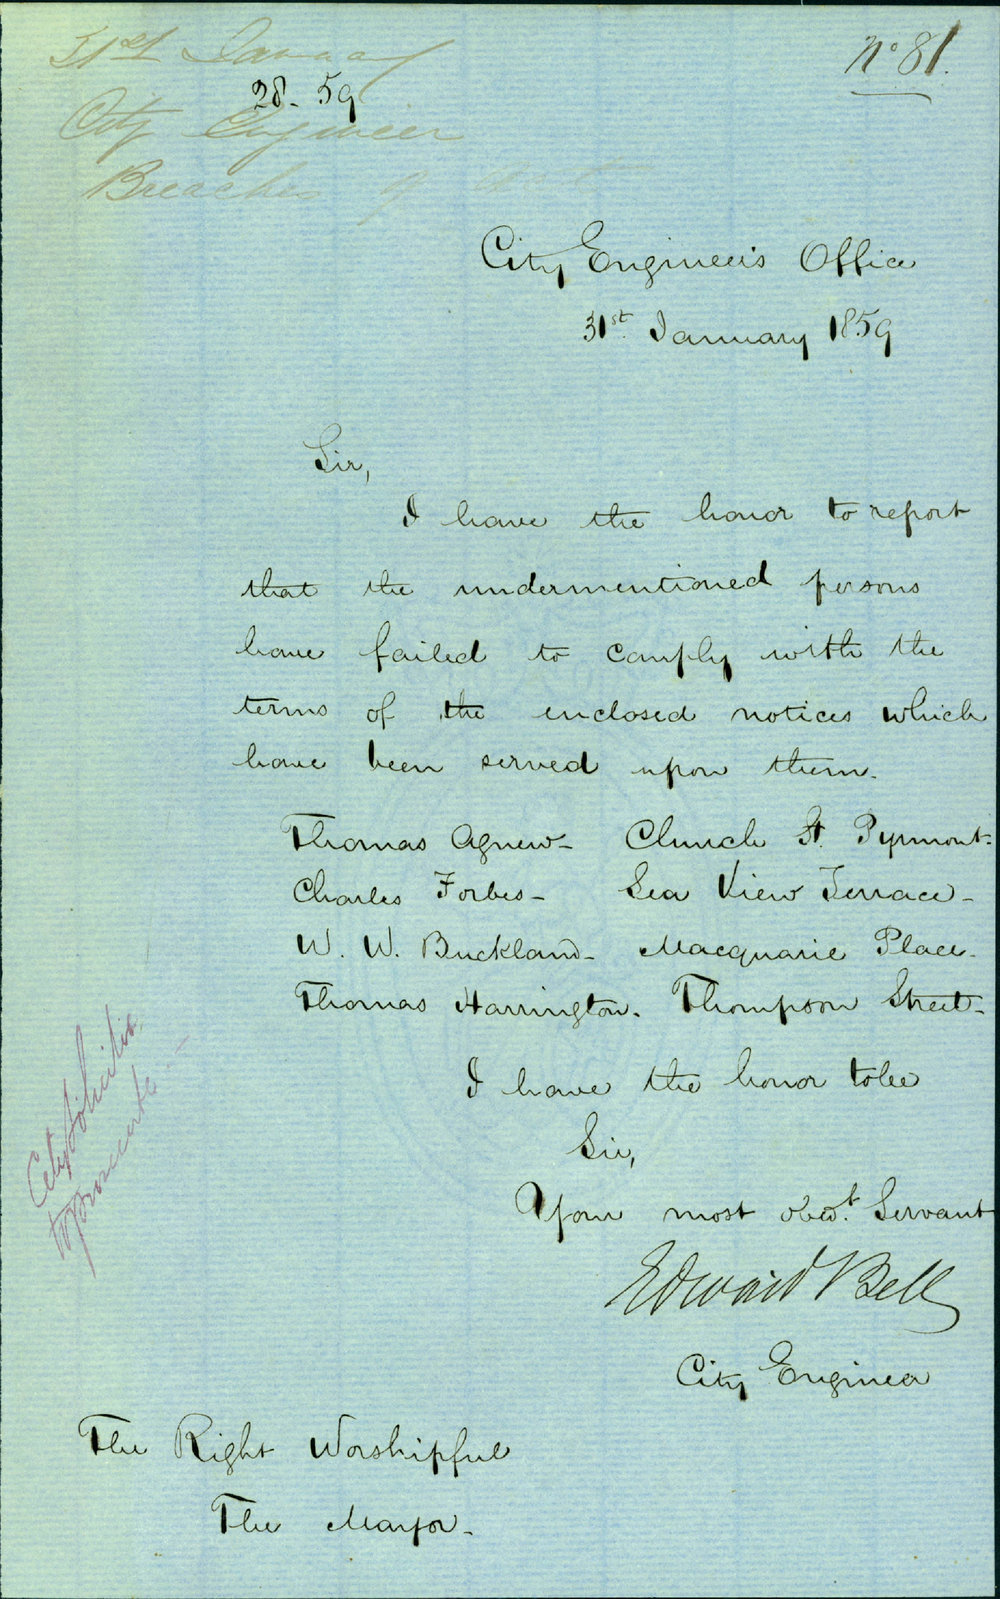 31st January
28-59
City Engineer
Breaches of Act
No 81.
City Engineer's Office
31st. January 1859
Sir,
I have the honor to report
that the undermentioned persons
have failed to comply with the
terms of the enclosed notices which
have been served upon them.
Thomas Agnew - Church St. Pyrmont -
Charles Forbes - Sea View Terrace -
W. W. Buckland - Macquarie Place -
Thomas Harrington. Thompson Street -
I have the honor to be
Sir,
Your most obedt. Servant
Edward Bell
City Engineer
The Right Worshipful
The Mayor -
City Solicitor
to prosecute -